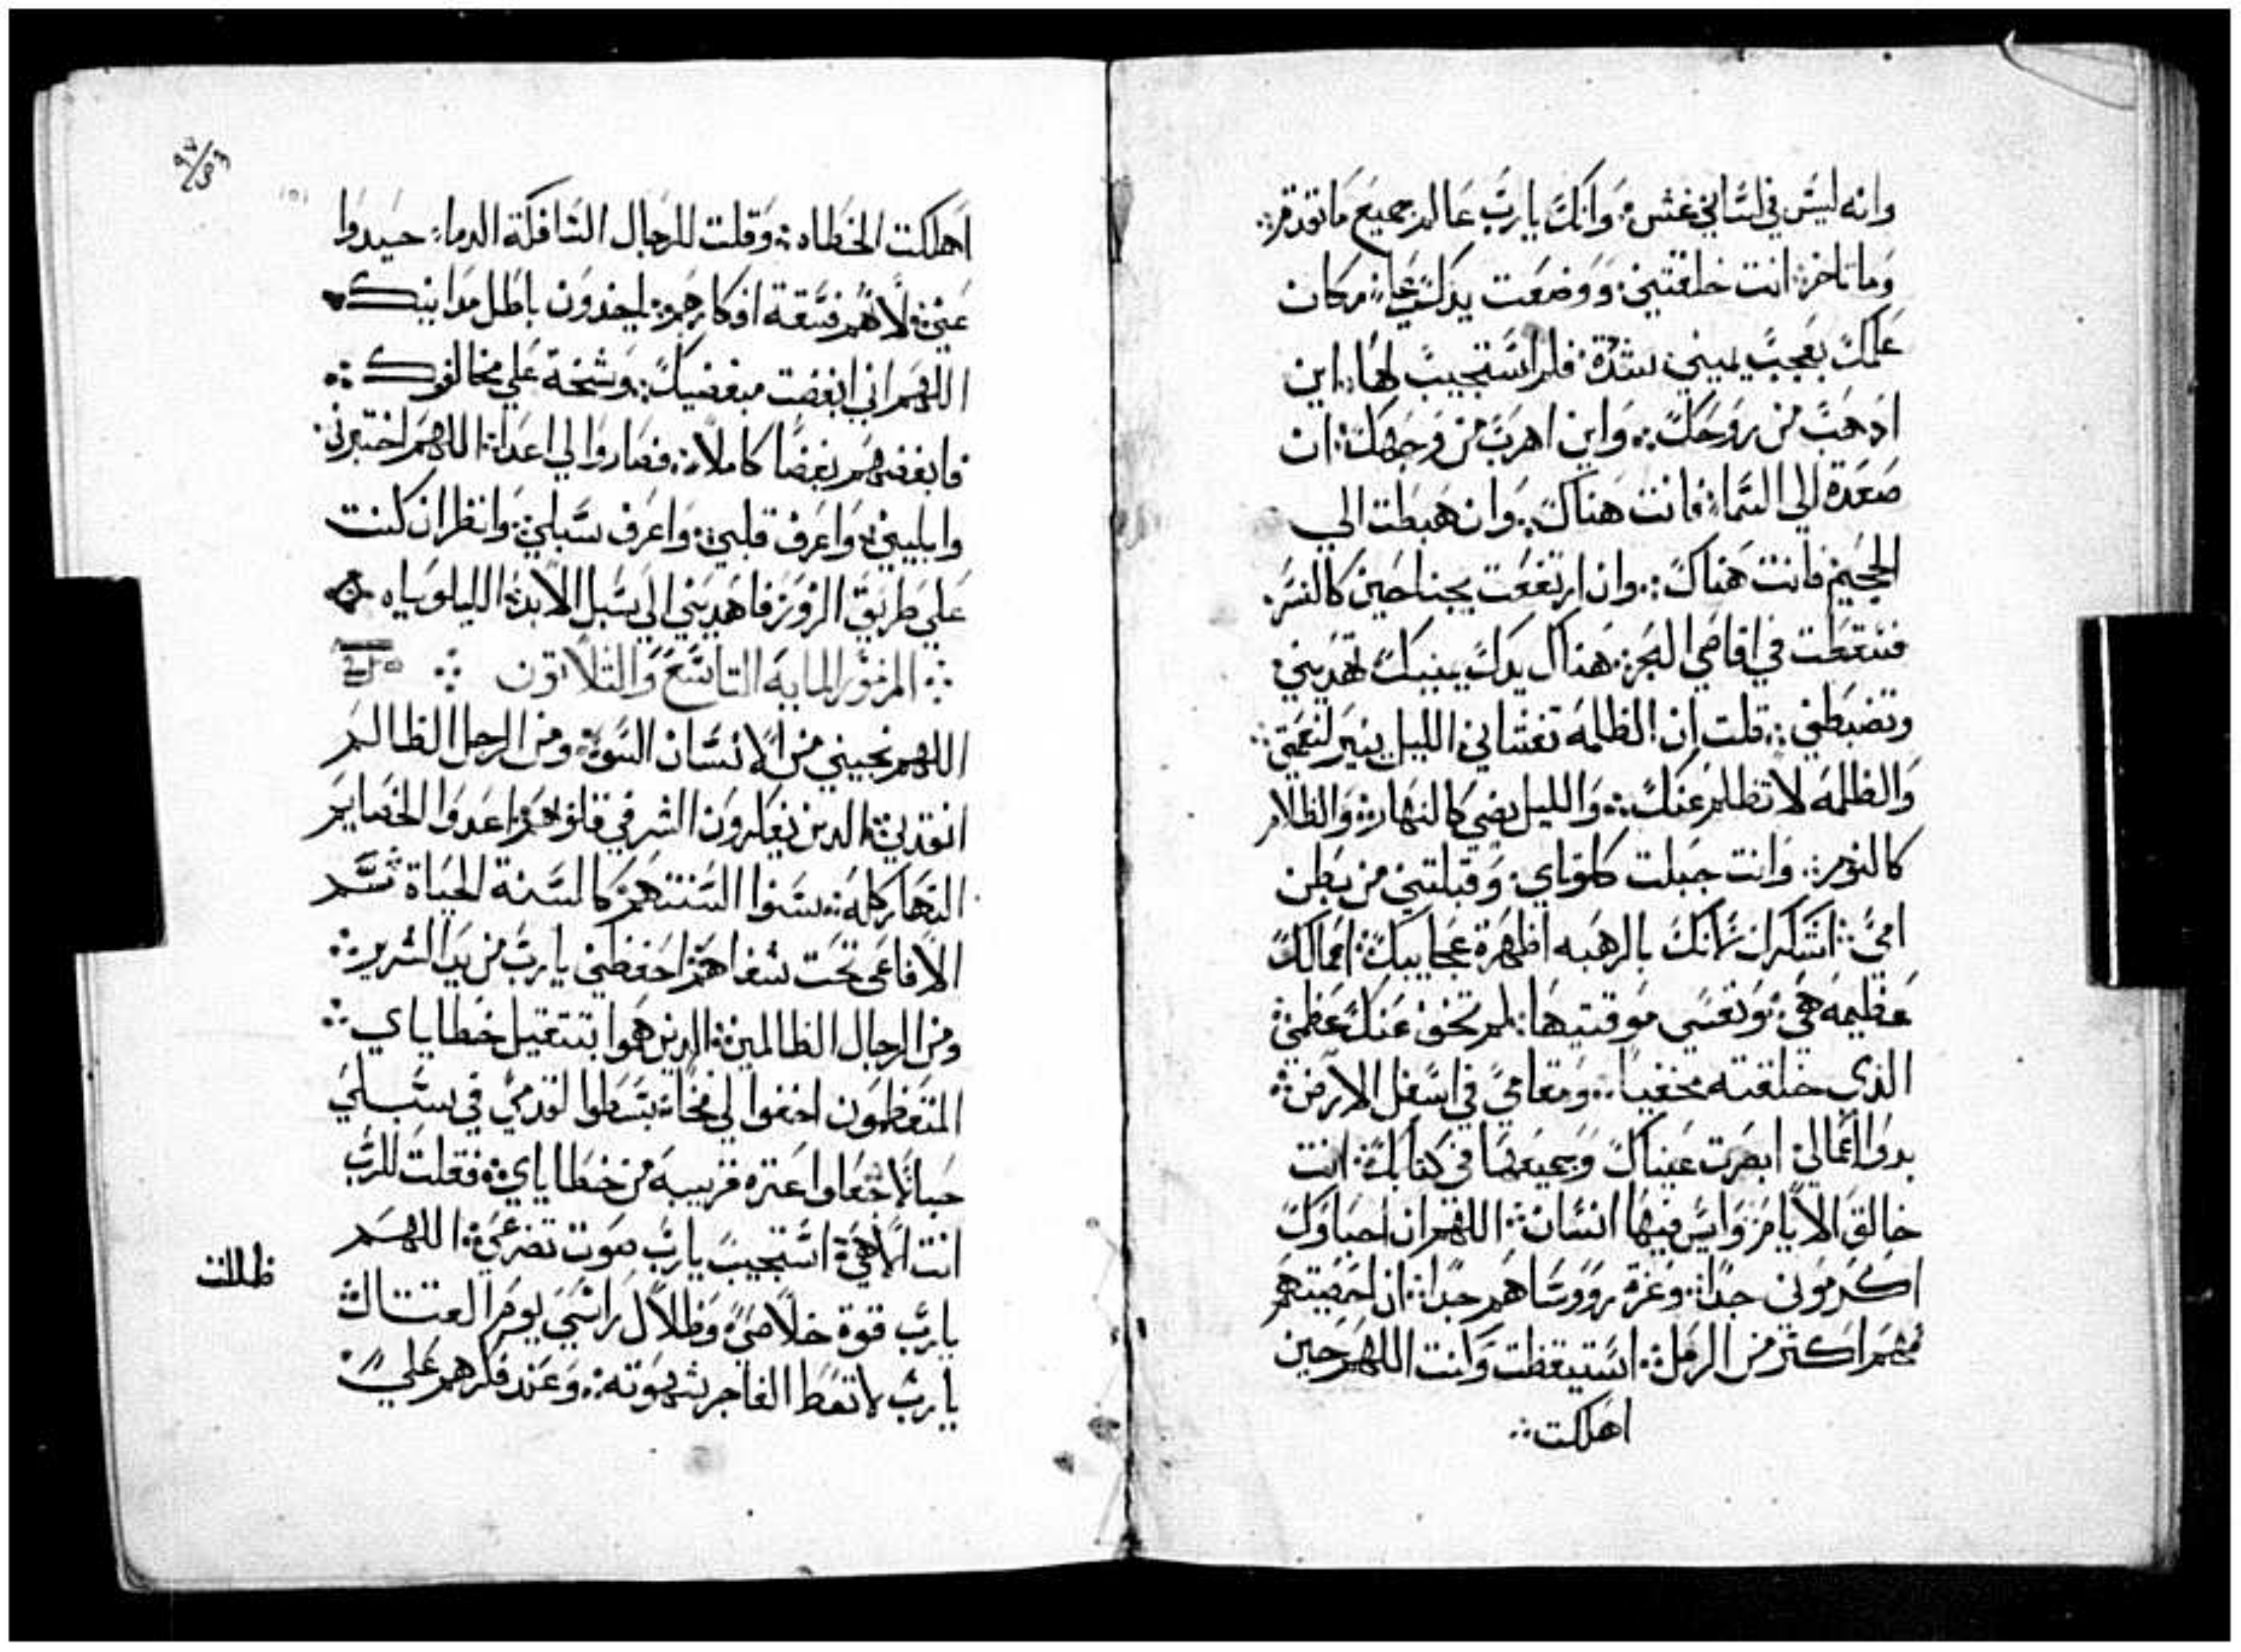 وانه ليس في لساني غش ؛ وانك يا رب عالم جميع ما تقدم ؞
وما تاخر ؛ انت خلقتني ؛ ووضعت يدك علي ؛ مكان
علمك بعجب يميني بشدة ؛ فلم استجيب لها ؞ اين
ادهب من روحك ؞ واين اهرب من وجهك ؛ ان
صعدة الي السما ؛ فانت هناك ؞ وان هبطت الي
الجحيم فانت هناك ؞ وان ارتفعت بجناحين كالنسر ؞
فسقطت في اقاصي البحر ؛ هناك يدك يمينك تهديني ؛
وتضبطني ؞ قلت ان الظلمه تغشاني ؛ الليل ينير لنعمتي ؞
والظلمه لا تظلم عنك ؞ والليل يضي كالنهار ؞ والظلام
كالنور ؞ وانت جبلت كلوتاي ؛ وقبلتني من بطن
امي ؞ اشكرك لانك بالرهبه اظهرة عجايبك ؛ اعمالك
عظيمه هي ؛ ونفسي موقنتيها ؛ لم تخف عنك عظمي ؞
الذي خلقته مخفيا ؞ ومقامي في اسفل الارض ؞
بدو اعمالي ؛ ابصرت عيناك وجميعها في كتابك ؛ انت
خالق الايام ؛ وليس فيها انسان ؞ اللهم ان احباوك
اكرموني جدا ؞ وعزة رووساهم جدا ؞ ان احصيتهم
فهم اكثر من الرمل ؞ استيقظت وانت اللهم حين
اهلكت ؞
٩٧/93
اهلكت الخطاه ؞ وقلت للرجال السافكة الدماء ؛ حيدوا
عني ؛ لانهم فسقة افكارهم ؛ ياخدون باطل مداينك
اللهم اني ابغضت مبغضيك ؞ وشخة علي مخالفوك ؞
فابغضهم بغضا كاملا ؞ فصاروا لي اعدا ؛ اللهم اختبرني ؞
وابليني ؛ واعرف قلبي ؛ واعرف سبلي ؛ وانظر ان كنت
علي طريق الزور ؛ فاهديني الي سبل الابد ؛ الليلوياه
؞ المزمور المايه التاسع والتلاتون ؞
اللهم نجيني من الانسان السوء ؛ ومن الرجل الظالم
انقدني ؛ الدين يفكرون الشر في قلوبهم ؛ اعدوا الخصايم
النهار كله ؞ سنوا السنتهم كالسنة الحياة ؞ سم
الافاعي تحت شفاهم ؛ احفظني يا رب من يد الشرير ؞
ومن الرجال الظالمين ؞ الدين هموا بتتقيل خطاياي ؞
المتعظمون اخفوا لي فخا ؞ بسطوا لقدمي في سبلي
حبالا جعلوا عتره قريبه من خطاياي ؛ فقلت للرب
انت الاهي ؛ استجيب يا رب صوت تضرعي ؛ اللهم
يارب قوة خلاصي ؛ وظلال راسي يوم القتال ؞
يارب لا تعط الفاجر شهوته ؞ وعند فكرهم علي ؞
ظللت